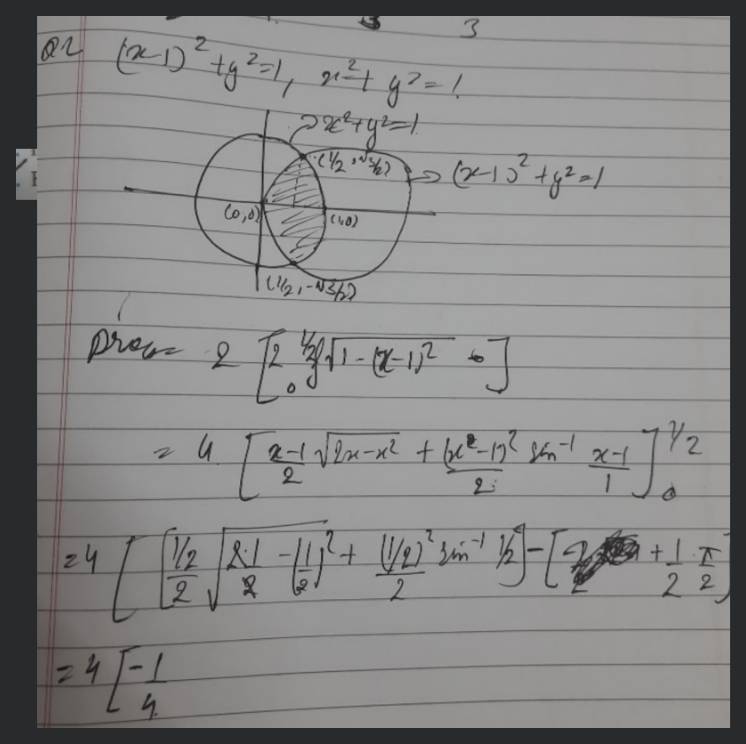 3
Q2 (x-1)²+y²=1, x²+y²=1.
x²+y²=1
(1/2, √3/2)
(x-1)²+y²=1
(0,0)
(1,0)
(1/2, -√3/2)
= 2 [2 ₀∫^1/2 √1-(x-1)² ]
= 4 [ (x-1)/2 √2x-x² + (x-1)²/2 sin⁻¹ (x-1)/1 ]₀^1/2
=4 [ [ (1/2)/2 √2·1/2 -(1/2)² + (1/2)²/2 sin⁻¹ 1/2 ] - [ + 1/2 · π/2 ]
=4 [ -1/4